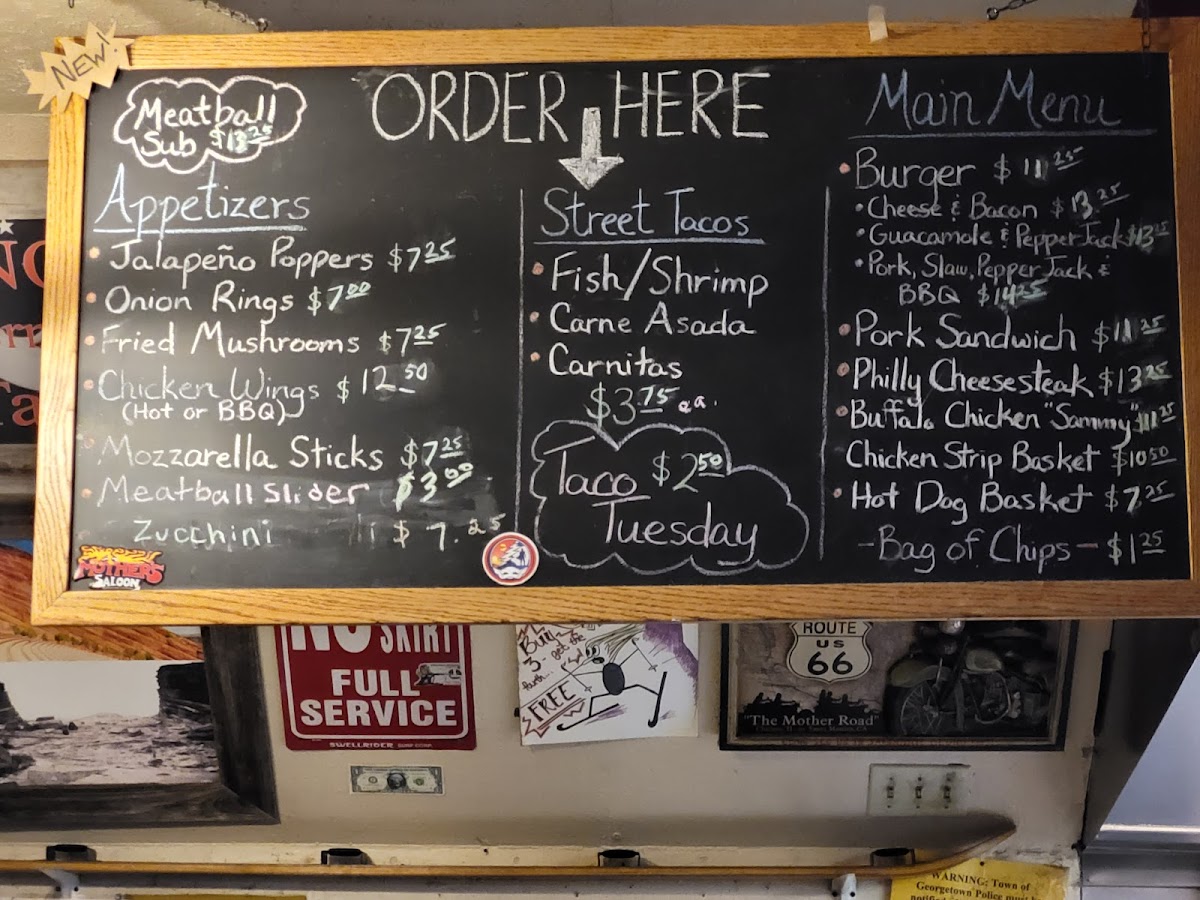 NEW!
Meatball
Sub $13.25
ORDER HERE
Appetizers
Jalapeño Poppers $7.25
Onion Rings $7.00
Fried Mushrooms $7.25
Chicken Wings $12.50
(Hot or BBQ)
Mozzarella Sticks $7.25
Meatball Slider $3.00
Zucchini $7.25
Street Tacos
Fish/Shrimp
Carne Asada
Carnitas
$3.75 ea.
Taco $2.50
Tuesday
Main Menu
Burger $11.25
Cheese & Bacon $13.25
Guacamole & Pepper Jack $13.25
Pork, Slaw, Pepper Jack &
BBQ $14.25
Pork Sandwich $11.25
Philly Cheesesteak $13.25
Buffalo Chicken "Sammy" $11.25
Chicken Strip Basket $10.50
Hot Dog Basket $7.25
- Bag of Chips - $1.25
MOTHERS
SALOON
NO SKIRT
FULL
SERVICE
SWELLRIDER
Buy 2
3- get the
FREE
ROUTE
US
66
"The Mother Road"
WARNING: Town of
Georgetown Police must be